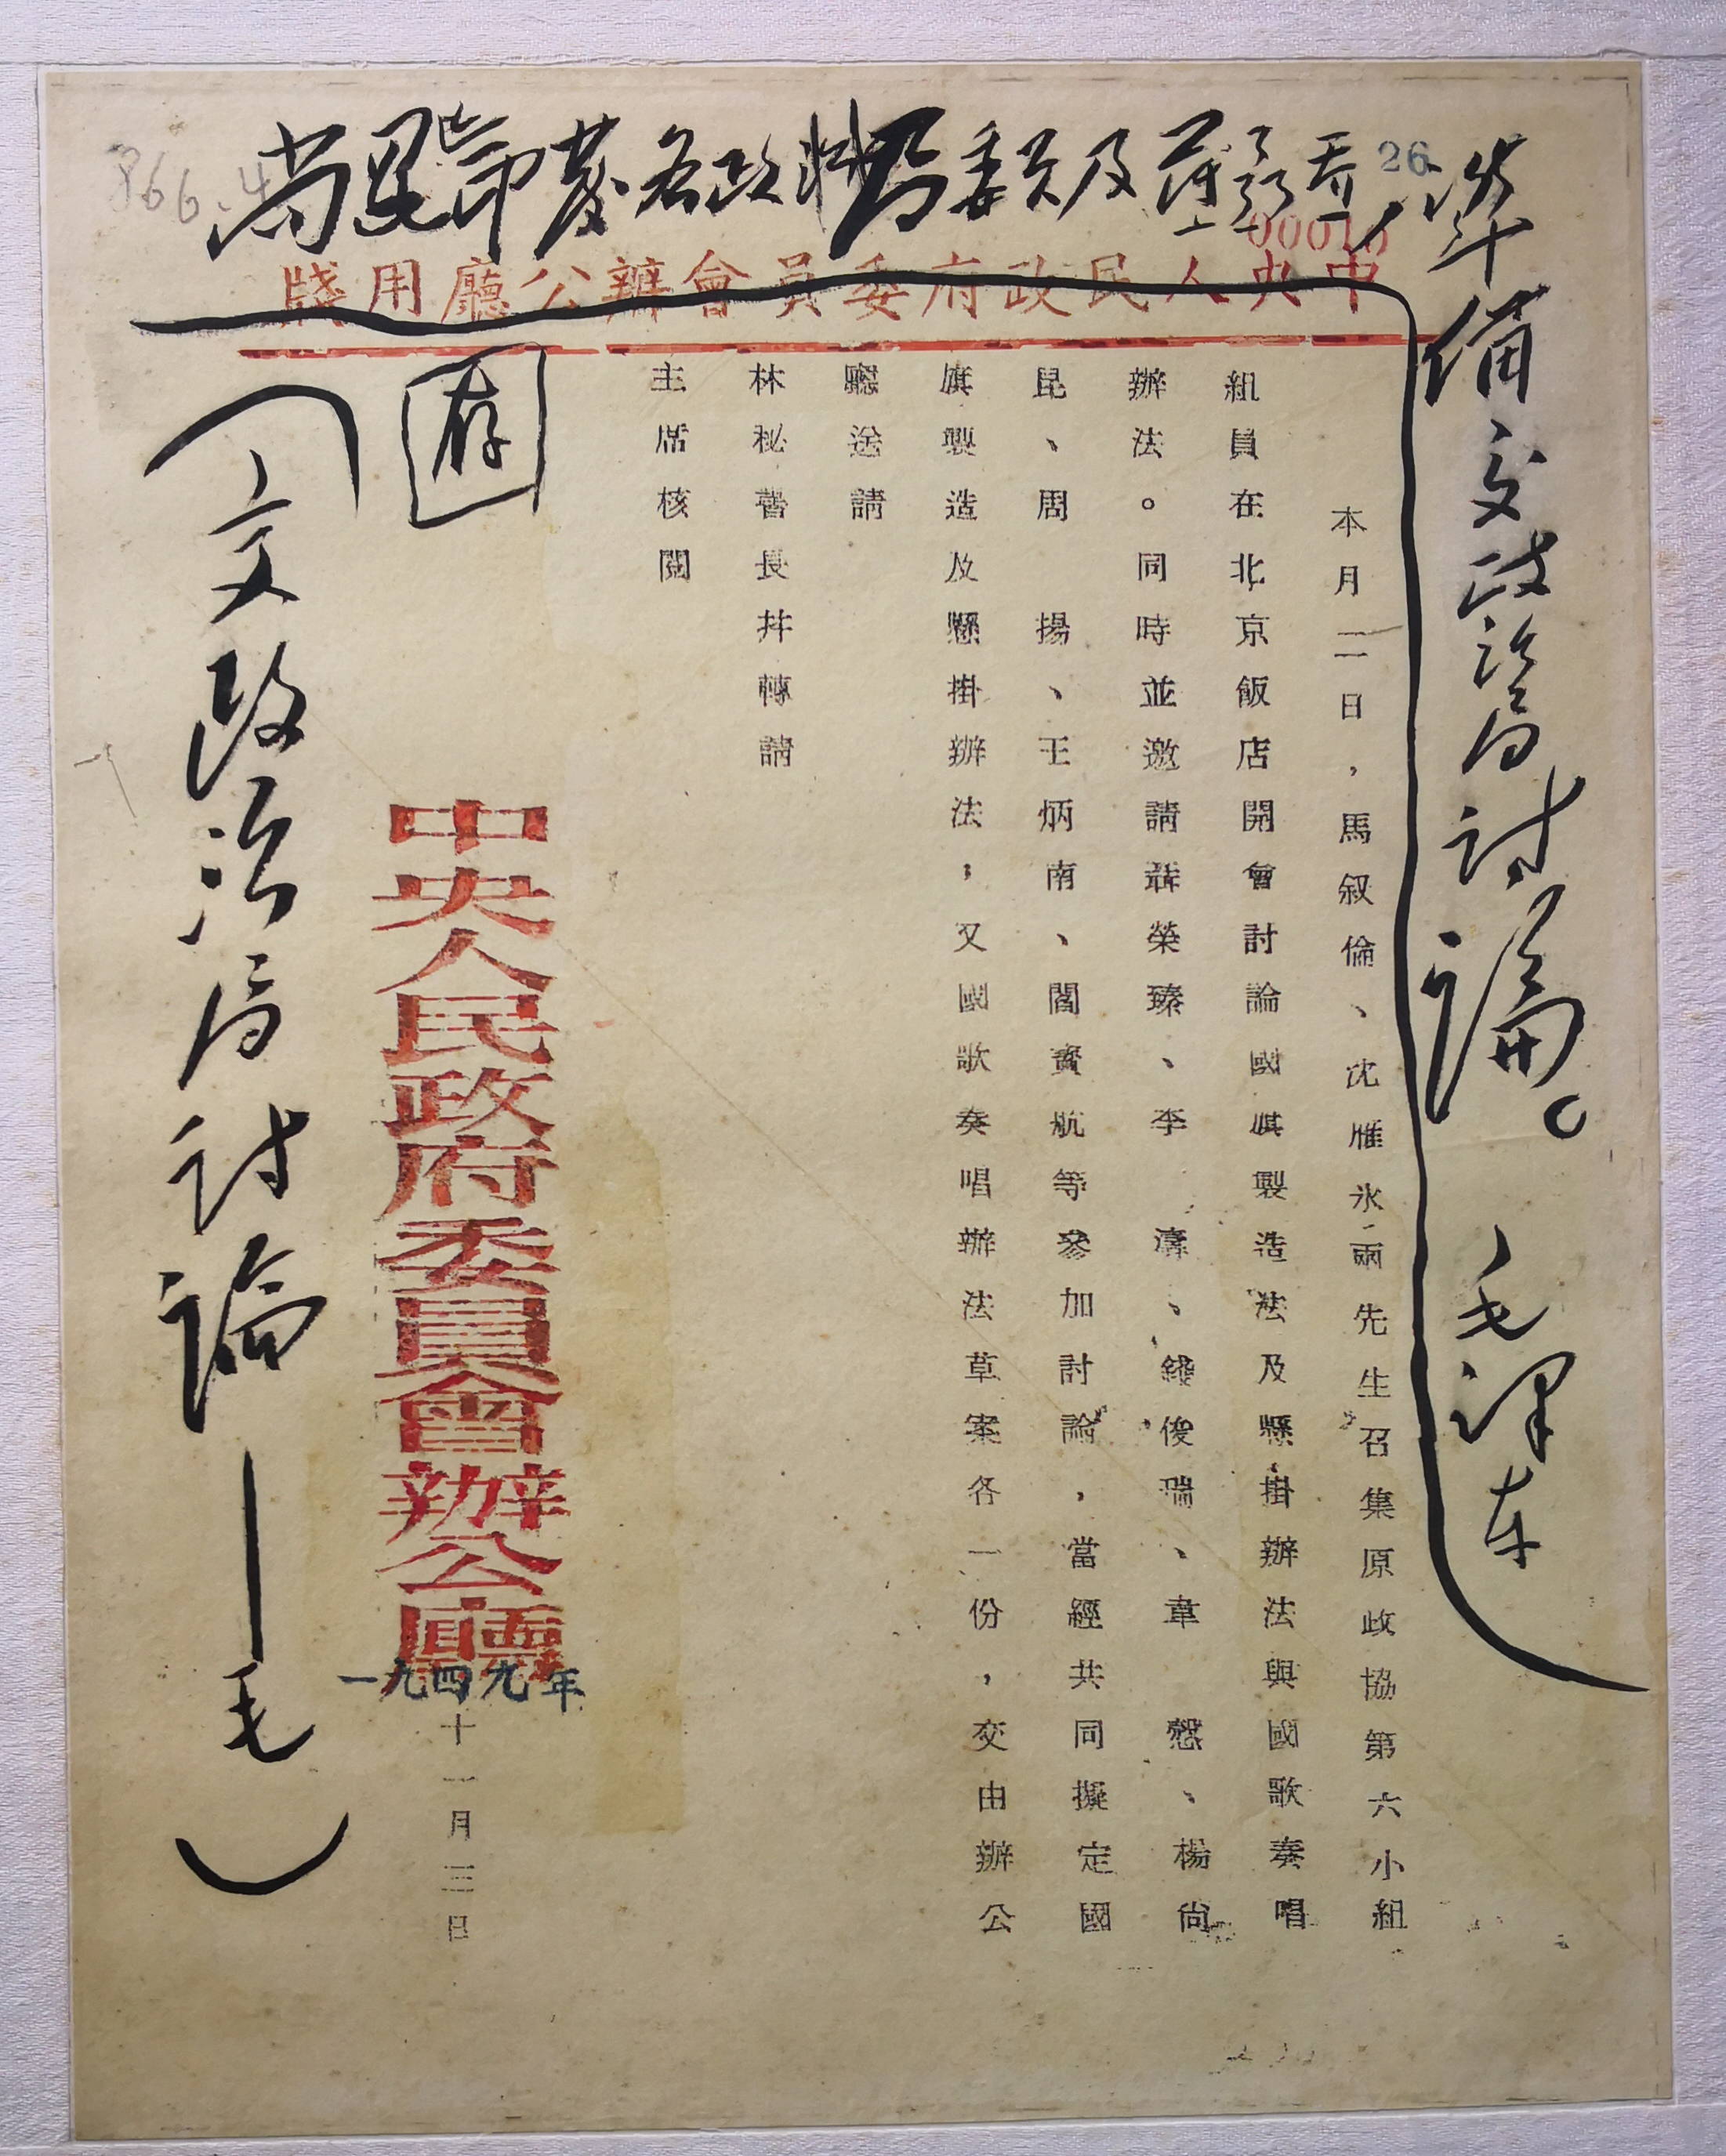 尚昆印發各政治局委員及薄
準備交政治局討論。 毛澤东
26
00016
866.4
中央人民政府委員會辦公廳用牋
本月二日，馬叙倫、沈雁氷兩先生召集原政協第六小組
組員在北京飯店開會討論國旗製造法及懸掛辦法與國歌奏唱
辦法。同時並邀請聶榮臻、李濤、錢俊瑞、韋愨、楊尙
昆、周揚、王炳南、閻寳航等參加討論，當經共同擬定國
旗製造及懸掛辦法，又國歌奏唱辦法草案各一份，交由辦公
廳送請
林秘書長并轉請
主席核閱
存
中央人民政府委員會辦公廳
一九四九年
十一月三日
（交政治局討論——毛）